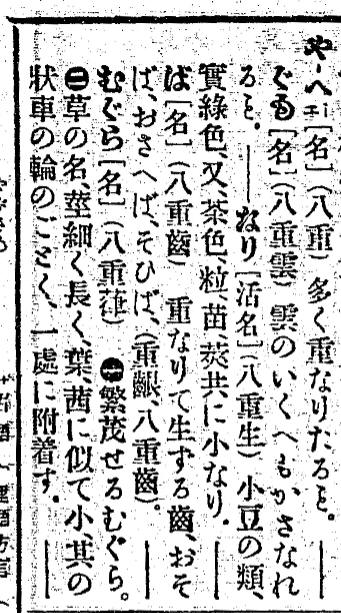 や-へエ[名](八重) 多く重なりたるヿ。 ――
ぐも[名](八重雲) 雲のいくへもかさなれ
るヿ。 ――なり[活名](八重生) 小豆の類、
實綠色、又、茶色、粒、苗、莢共に小なり。 ――
ば[名](八重齒) 重なりて生ずる齒、おそ
ば、おさへば、そひば、(重齫、八重齒)。 ――
むぐら[名](八重葎) ㊀繁茂せるむぐら。
㊁草の名、莖細く長く、葉、茜に似て小、其の
狀車の輪のごとく、一處に附着す。 ――